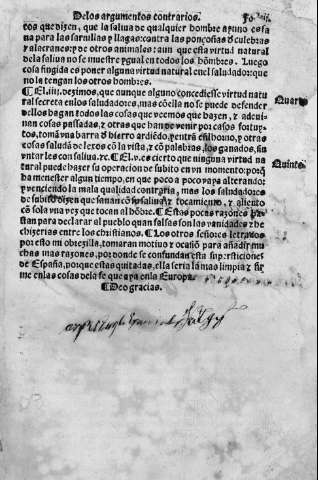 De los argumentos contrarios.
cos que dizen, que la saliua de qualquier hombre ayuno es sa
na para las sarnillas y llagas: contra las ponçoñas d̃ culebras
y alacranes: y de otros animales: aun que esta virtud natural
de la saliua no se muestre ygual en todos los hõmbres. Luego
cosa fingida es poner alguna virtud natural en el saludador: que
no la tengan los otros hombres.
¶ El .iiij. dezimos, que aunque alguno concediesse virtud natu
ral secreta en los saludadores, mas cõ ella no se puede defender
dellos hagan todas las cosas que veemos que hazen, y adeui-
nan cosas passadas, y otras que han de venir por casos fortuy-
tos, tomã vna barra d̃ hierro ardiẽdo,
cosas saluda de lexos cõ la vista, y cõ palabras, los ganados, sin
vntar les con saliua. ⁊c. ¶ El .v. es cierto que ninguna virtud na
tural puede hazer su operacion de subito en vn momento: porq̃
ha menester algun tiempo, en que poco a poco vaya alterando:
y venciendo la mala qualidad contraria, mas los saludadores
de subito dizen que sanan cõ su saliua, y tocamiento, y aliento
cõ sola vna vez que tocan al hõbre. ¶ Estas pocas razones bas
tan para declarar al pueblo quan falsas son las vanidades y he
chizerias entre los christianos. ¶ Los otros señores letrados
por esto mi obrezilla, tomaran motiuo y ocasiõ para añadir mu
chas mas razones, por donde se confundan esta supersticiones
de España, porque estas quitadas, ella seria la mas limpia y fir
me en las cosas dela fe que aya en la Europa.
¶ Deo gracias.
Quarto
Quinto